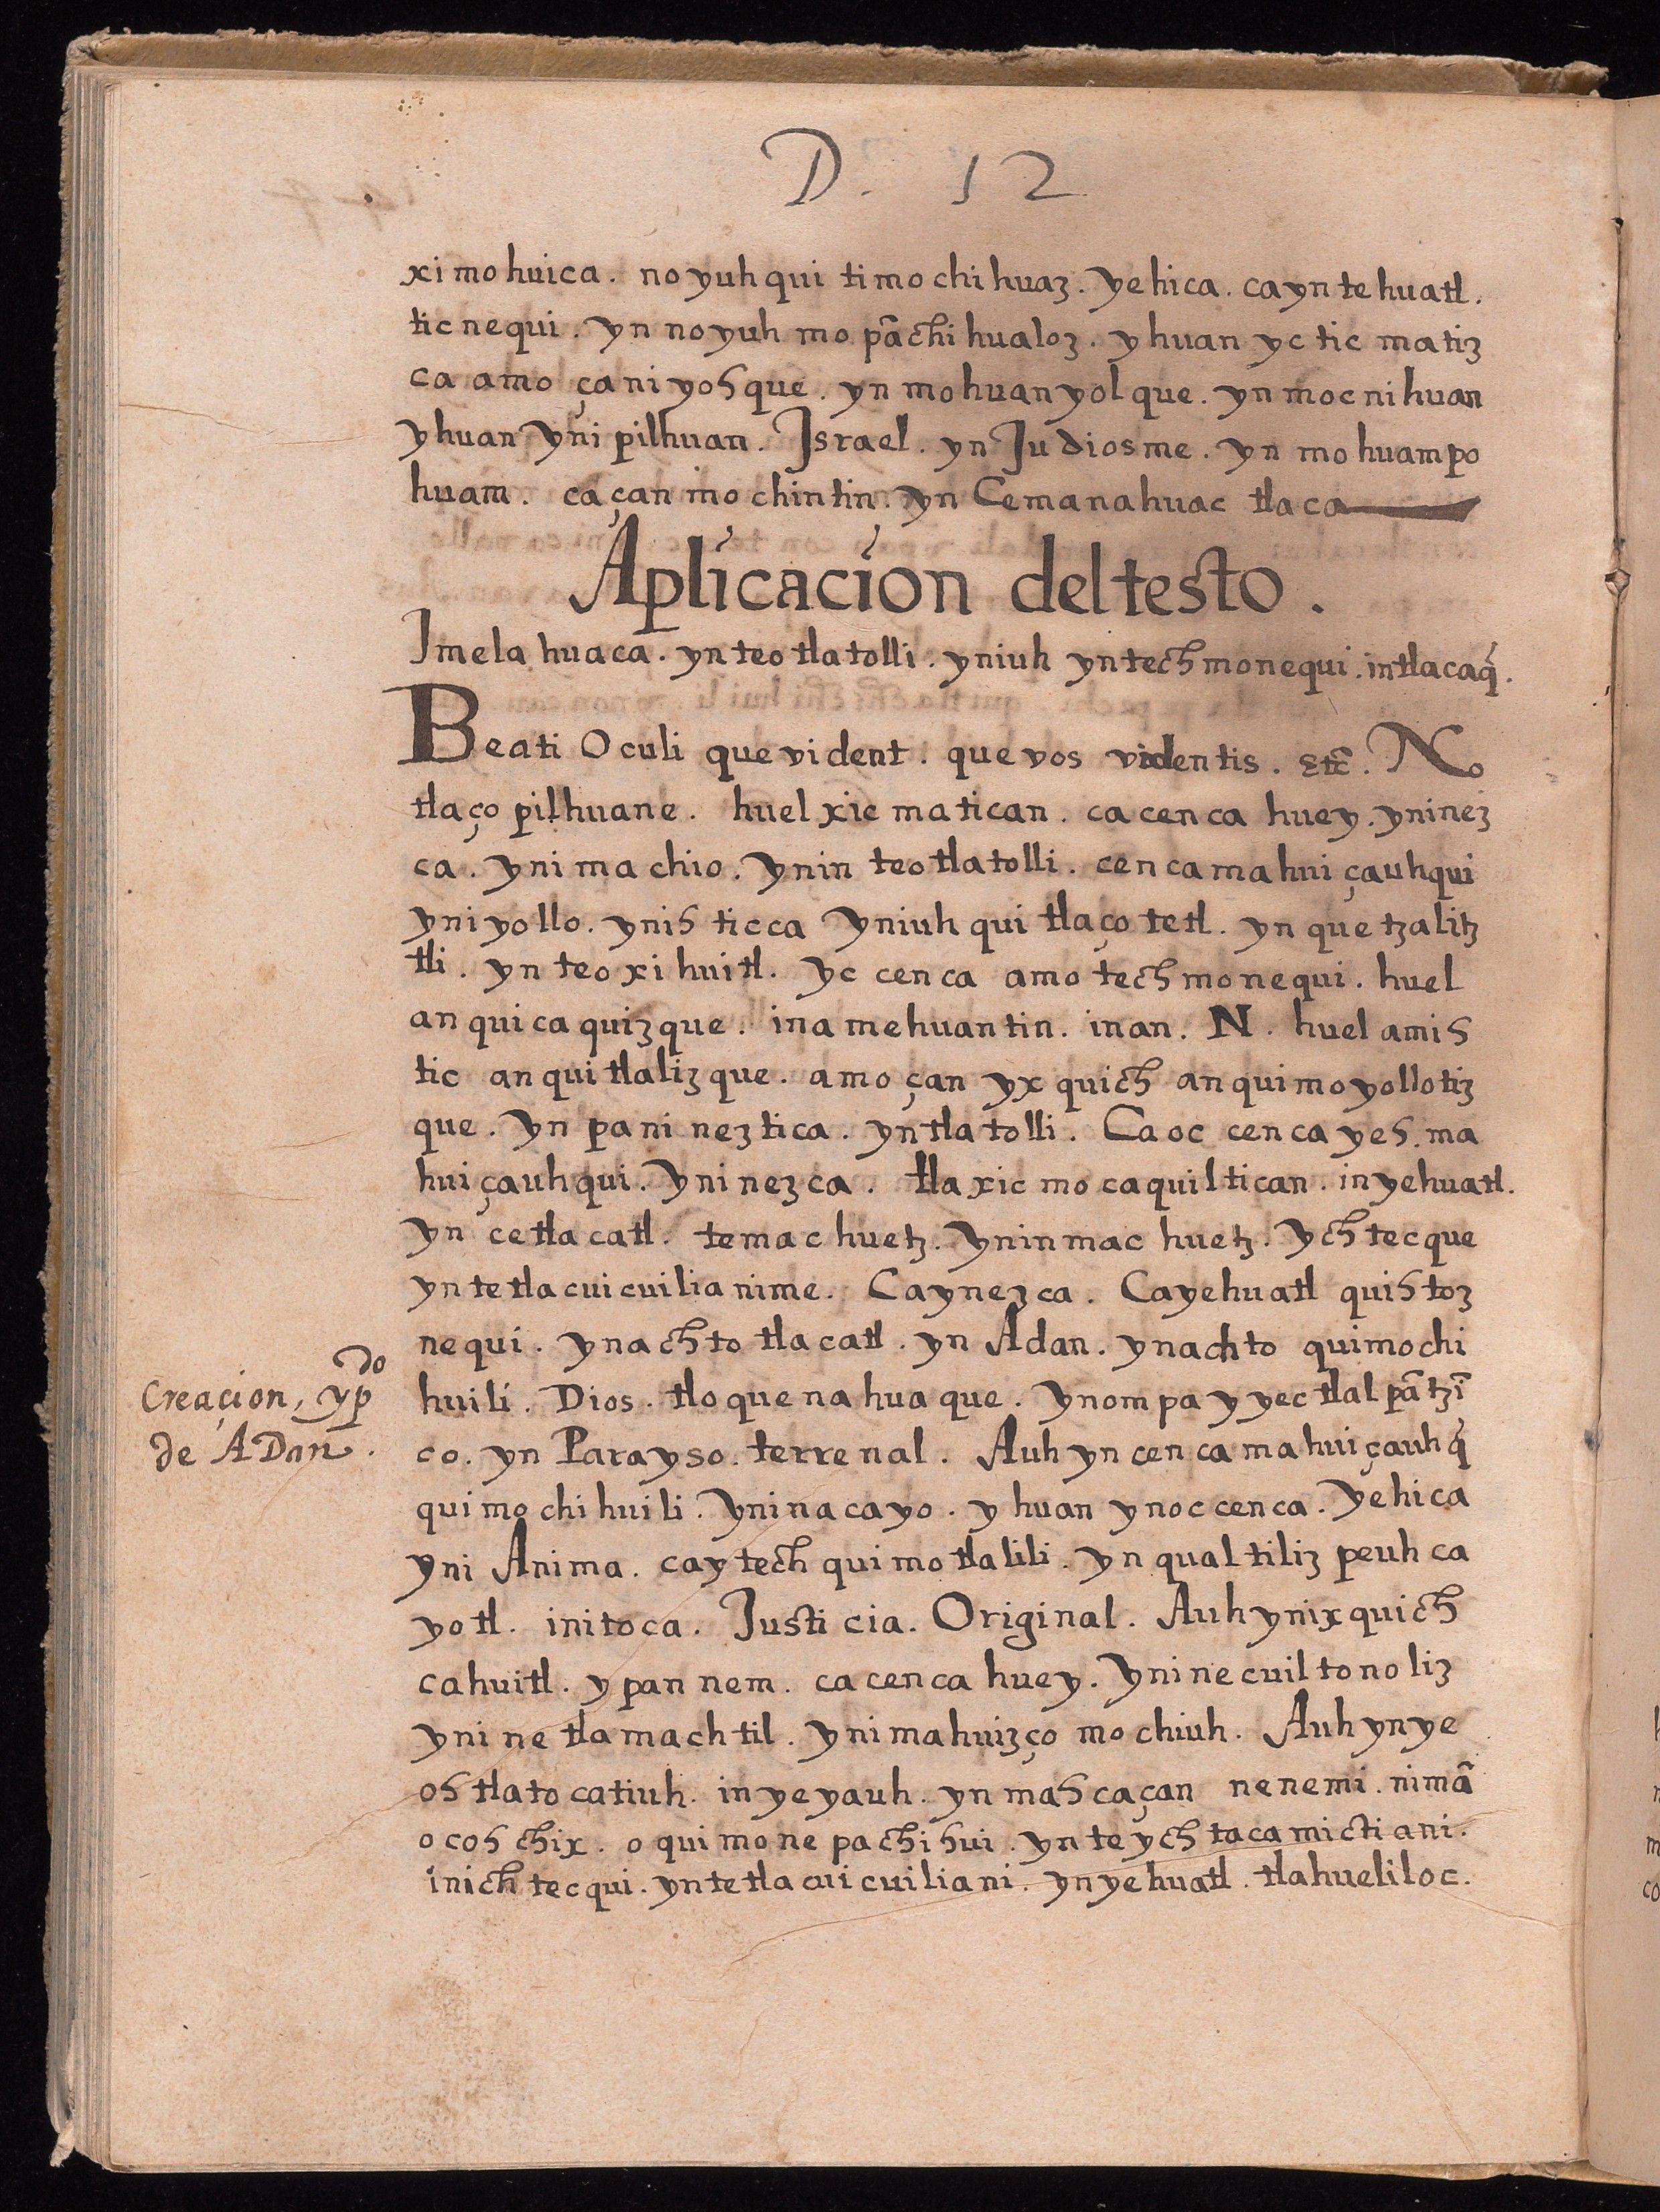 D. 12
ximohuica. noyuhqui timochihuaz. yehica. cayntehuatl.
ticnequi. yn noyuh mo pāchihualoz. yhuan yc tic matiz
ca amo çaniyohque. yn mohuanyolque. yn mocnihuan
yhuan yni pilhuan. Israel. yn Judiosme. yn mohuampo
huam. caçan mochintin. yn Cemanahuac tlaca
Aplicacion deltesto.
Imelahuaca. yn teotlatolli. yniuh yntech monequi. intlacaq̃.
Beati Oculi que vident. que vos videntis. etc̃. No
tlaço pilhuane. huel xic matican. ca cenca huey. yninez
ca. yni machio. ynin teotlatolli. cenca mahuiçauhqui
yni yollo. ynih ticca yniuhqui tlaçotetl. yn quetzalitz
tli. yn teoxihuitl. yc cenca amotech monequi. huel
anquicaquizque. inamehuantin. inan. N. huel amih
tic anquitlalizque. amo çan yxquich anquimoyollotiz
que. yn pani neztica. yn tlatolli. Caoc cenca yeh. ma
huiçauhqui. yninezca. tlaxic mocaquiltican. inyehuatl.
yn cetlacatl. temac huetz. yninmac huetz. ychtecque
yn tetlacuicuilianime. Caynezca. Cayehuatl quihtoz
nequi. ynachto tlacatl. yn Adan. ynachto quimochi
huili. Dios. tloque nahuaque. ynompa yyectlalpātzī
co. yn Parayso. terrenal. Auh yn cenca mahuiçauhq̃
quimochihuili. yninacayo. yhuan ynoc cenca. yehica
yni Anima. caytech quimotlalili. yn qualtiliz peuhca
yotl. initoca. Justicia. Original. Auh ynixquich
cahuitl. ypan nem. ca cenca huey. yninecuiltonoliz
yninetlamachtil. ynimahuizço mochiuh. Auh ynye
oh tlatocatiuh. inyeyauh. yn mah caçan nenemi. nimā
ocoh chix. oquimonepachihui. yn teychtacamictiani.
inichtecqui. yntetlacuicuiliani. ynyehuatl. tlahueliloc.
Creaçion, yp̃do
de ADan.